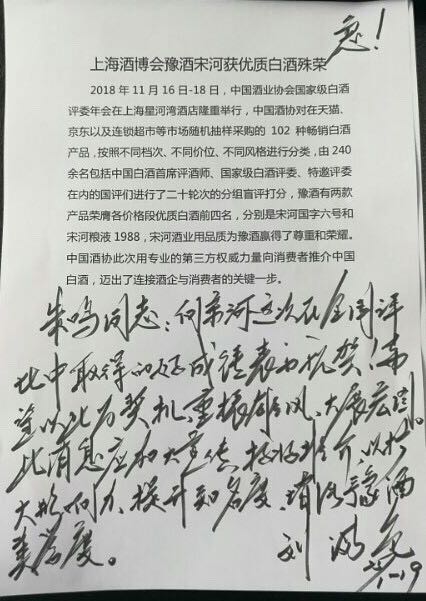 急！
上海酒博会豫酒宋河获优质白酒殊荣
2018 年 11 月 16 日-18 日，中国酒业协会国家级白酒
评委年会在上海星河湾酒店隆重举行，中国酒协对在天猫、
京东以及连锁超市等市场随机抽样采购的 102 种畅销白酒
产品，按照不同档次、不同价位、不同风格进行分类，由 240
余名包括中国白酒首席评酒师、国家级白酒评委、特邀评委
在内的国评们进行了二十轮次的分组盲评打分，豫酒有两款
产品荣膺各价格段优质白酒前四名，分别是宋河国字六号和
宋河粮液 1988，宋河酒业用品质为豫酒赢得了尊重和荣耀。
中国酒协此次用专业的第三方权威力量向消费者推介中国
白酒，迈出了连接酒企与消费者的关键一步。
朱鸣同志：向宋河这次在全国评
比中取得的好成绩表示祝贺！希
望以此为契机，重振雄风，大展宏图。
此消息应加大宣传，推介，以扩
大影响力，提升知名度，豫酒
美誉度。
刘